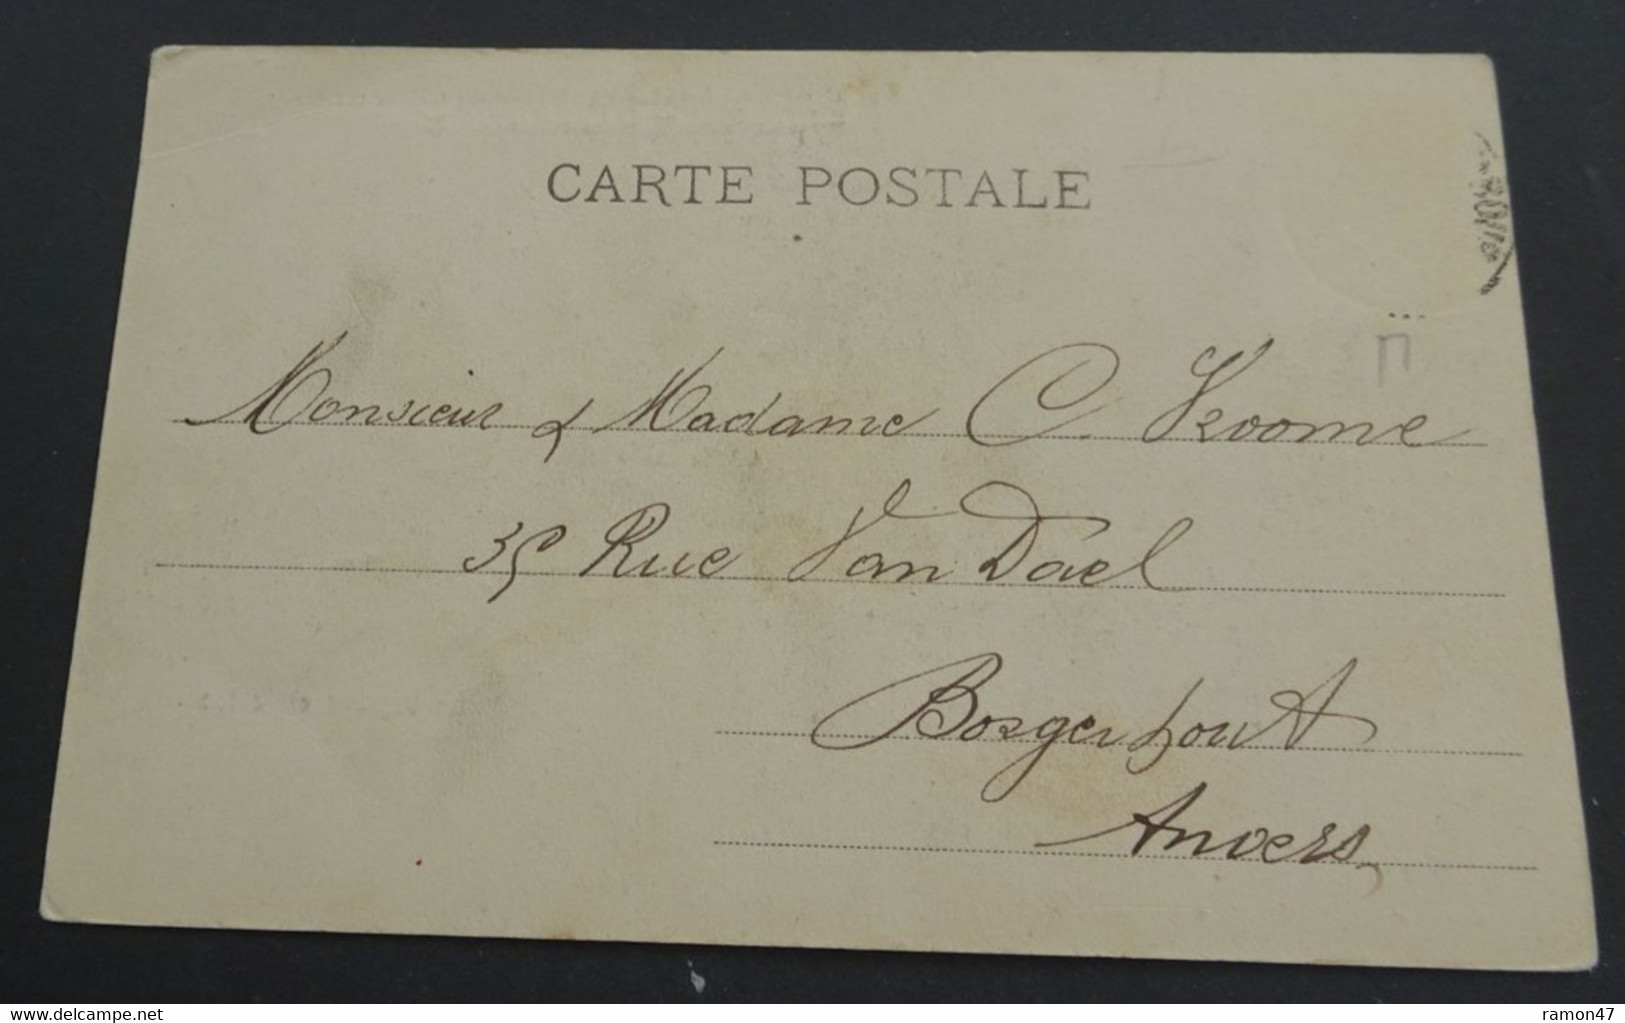 CARTE POSTALE
Monsieur & Madame C. Kroome
35 Rue Van Dael
Borgerhout
Anvers
delcampe.net
ramon47